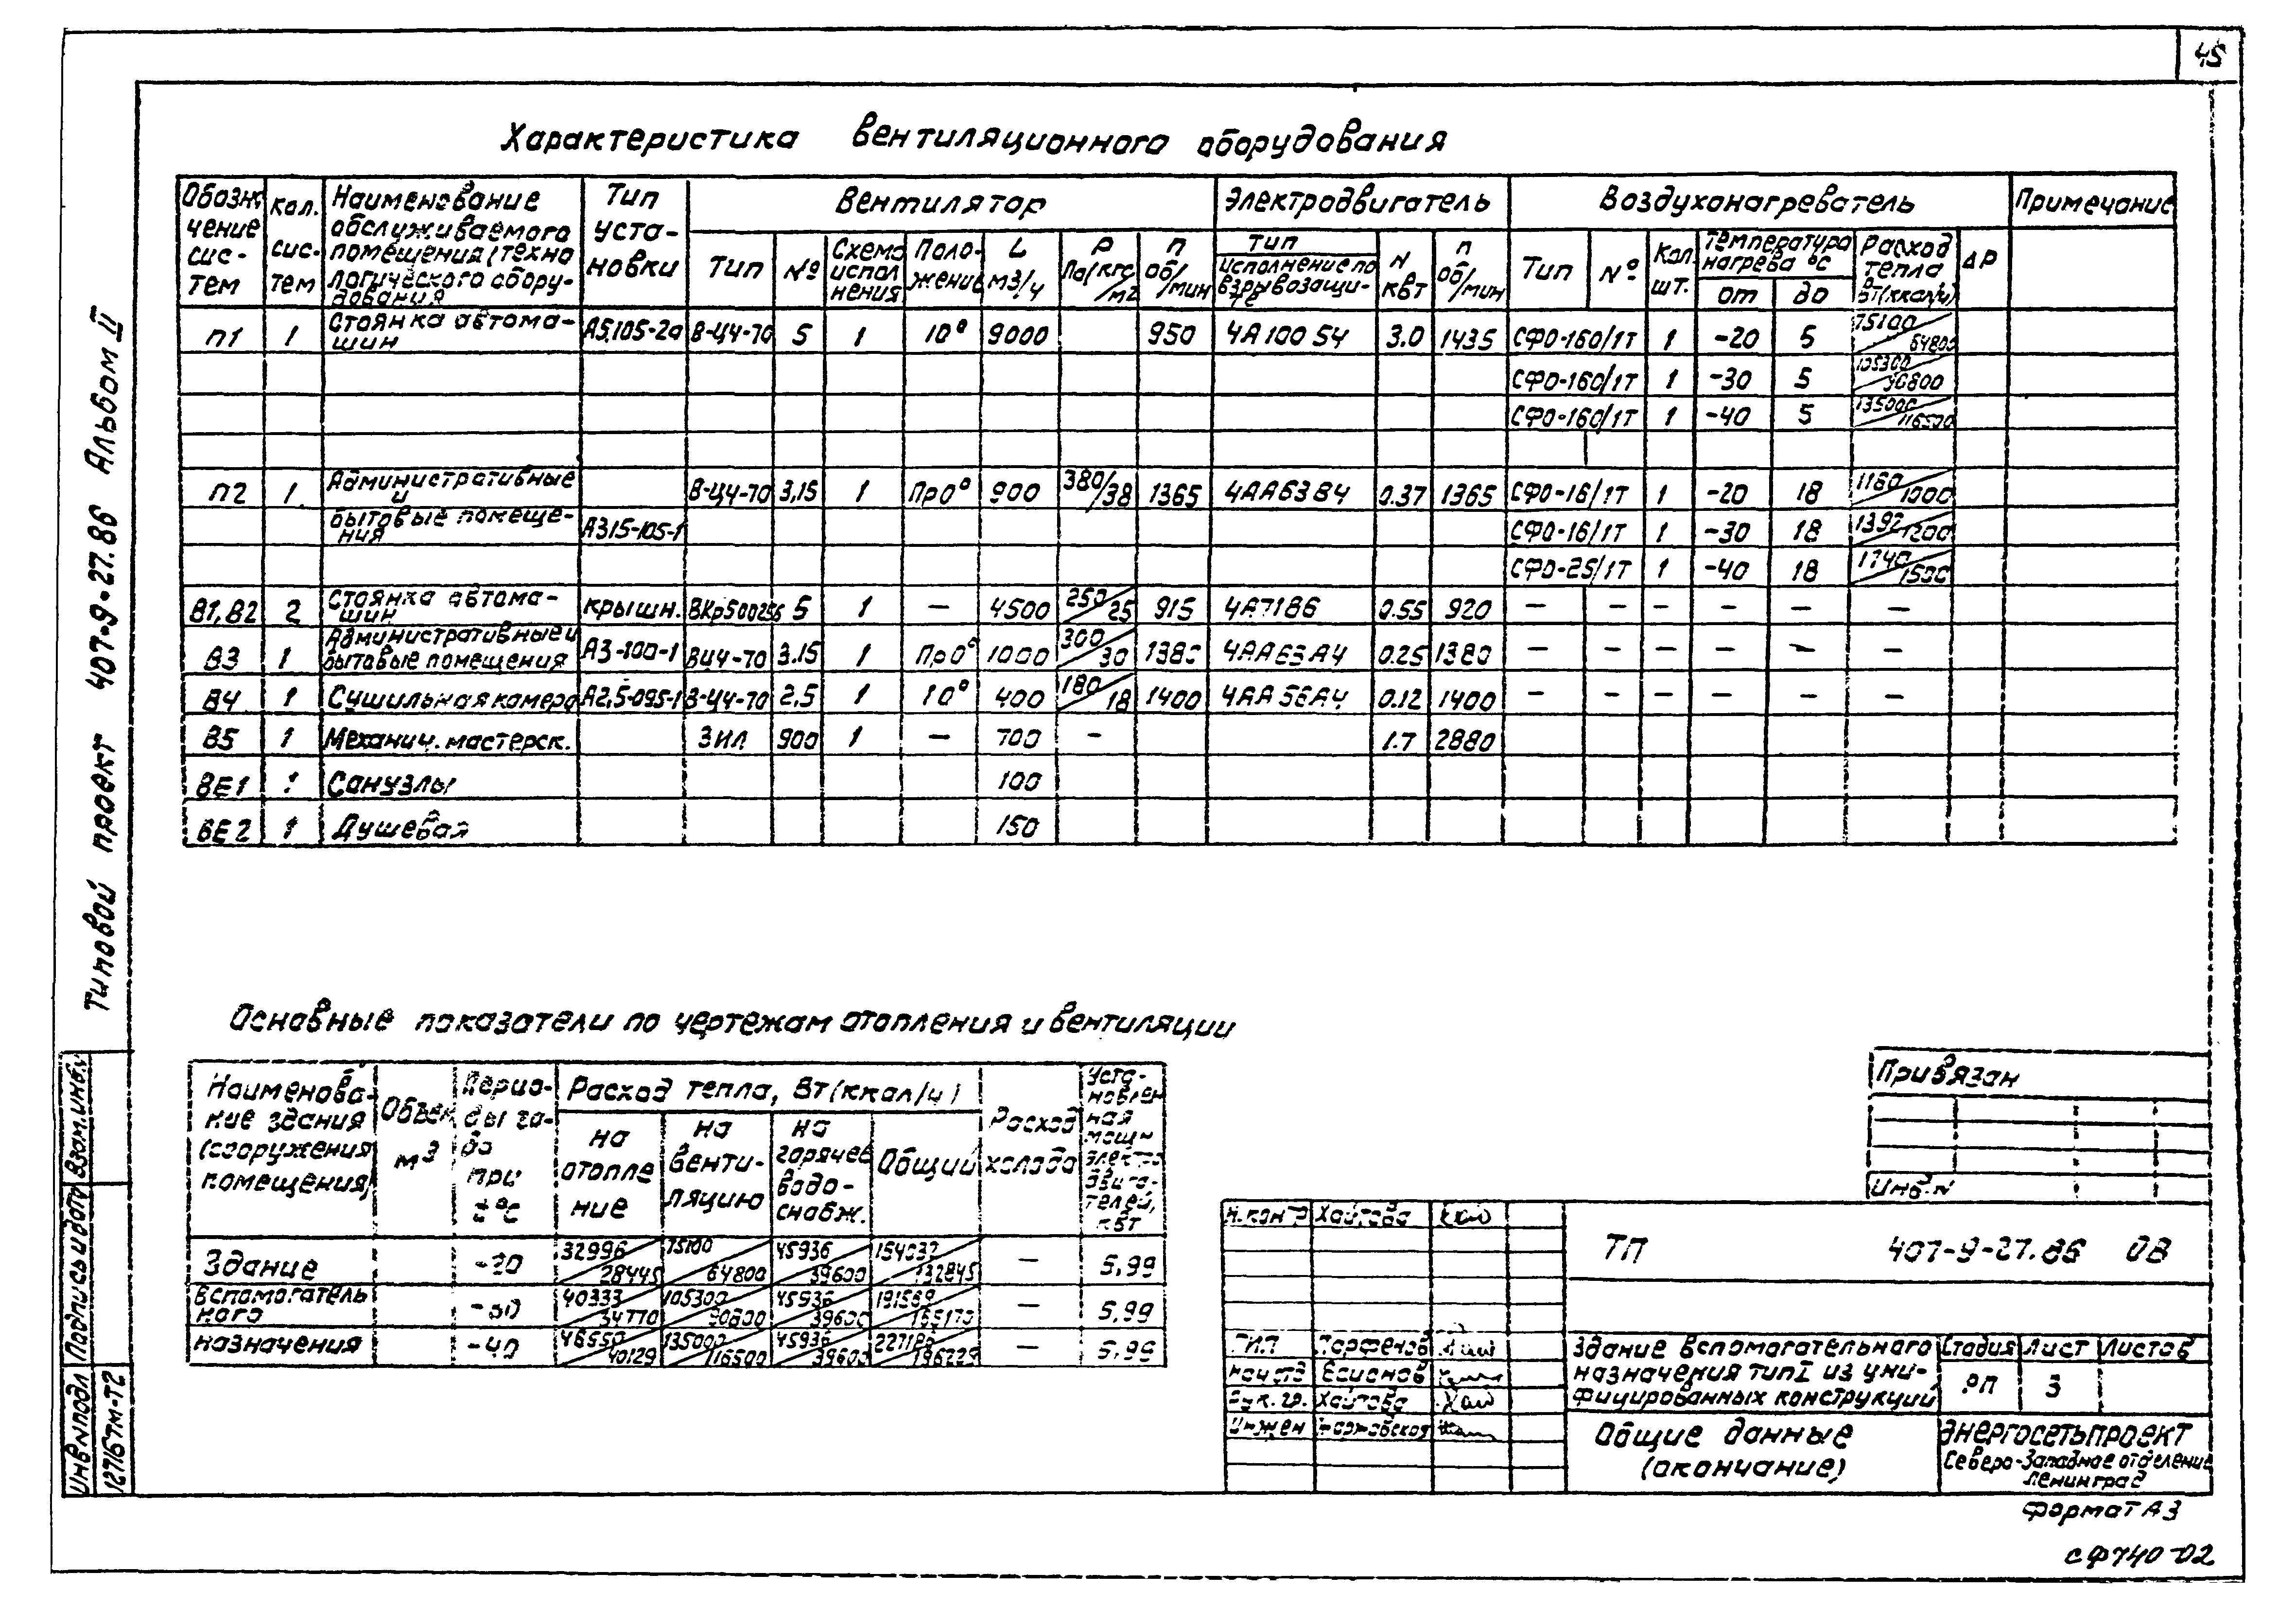 45
Характеристика вентиляционного оборудования
Обозначение систем | Кол. систем | Наименование обслуживаемого помещения (технологического оборудования | Тип установки | Вентилятор | Электродвигатель | Воздухонагреватель | Примечание
Тип | № | Схема исполнения | Положение | L м3/ч | P Па/кгс/м2 | п об/мин | Тип исполнение по взрывозащите | N кВт | п об/мин | Тип | № | Кол. шт. | Температура нагрева °С от | до | Расход тепла Вт(ккал/ч) | ΔР
П1 | 1 | Стоянка автомашин | А5,105-2а | В-Ц4-70 | 5 | 1 | Л0° | 9000 | 950 | 4А100S4 | 3.0 | 1435 | СФО-160/1Т | 1 | -20 | 5 | 75100/64800
СФО-160/1Т | 1 | -30 | 5 | 105300/90800
СФО-160/1Т | 1 | -40 | 5 | 135000/116500
П2 | 1 | Административные и | В-Ц4-70 | 3,15 | 1 | Пр0° | 900 | 380/38 | 1365 | 4АА63В4 | 0.37 | 1365 | СФО-16/1Т | 1 | -20 | 18 | 1160/1000
бытовые помещения | А315-105-1 | СФО-16/1Т | 1 | -30 | 18 | 1392/1200
СФО-25/1Т | 1 | -40 | 18 | 1740/1500
В1,В2 | 2 | Стоянка автомашин | крышн. | 5 | 1 | — | 4500 | 250/25 | 915 | 4А71В6 | 0.55 | 920 | — | — | — | — | — | —
В3 | 1 | Административные и бытовые помещения | А3-100-1 | ВЦ4-70 | 3.15 | 1 | Пр0° | 1000 | 300/30 | 1380 | 4АА63А4 | 0.25 | 1380 | — | — | — | — | — | —
В4 | 1 | Сушильная камера | А2,5-095-1 | В-Ц4-70 | 2,5 | 1 | Л0° | 400 | 180/18 | 1400 | 4АА56А4 | 0.12 | 1400 | — | — | — | — | — | —
В5 | 1 | Механич. мастерск. | ЗИЛ | 900 | 1 | — | 700 | — | 1.7 | 2880
ВЕ1 | 1 | Санузлы | 100
ВЕ2 | 1 | Душевая | 150
Основные показатели по чертежам отопления и вентиляции
Наименование здания (сооружения помещения) | Объем м3 | Периоды года при t°С | Расход тепла, Вт(ккал/ч) | Расход холода | Установленная мощн электродвигателей, кВт
на отопление | на вентиляцию | на горячее водоснабж. | Общий
Здание | -20 | 32996/28445 | 75100/64800 | 45936/39600 | 154032/132845 | — | 5,99
вспомогательного | -30 | 40333/34770 | 105300/90800 | 45936/39600 | 191569/165170 | — | 5,99
назначения | -40 | 46550/40129 | 135000/116500 | 45936/39600 | 196229 | — | 5,99
Привязан
Инв. №
Н.контр | Хаитова
ТП 407-9-27.86 ОВ
ГИП | Парфенов
Нач отд
Рук. гр. | Хаитова
Инжен
Здание вспомогательного назначения тип I из унифицированных конструкций
Стадия | Лист | Листов
РП | 3
Общие данные (окончание)
Энергосетьпроект
Северо-Западное отделение
Ленинград
Формат А3
сф740-02
Типовой проект 407-9-27.86 Альбом II
Взам.инв.№
Подпись и дата
Инв№подл
12716тм-т2